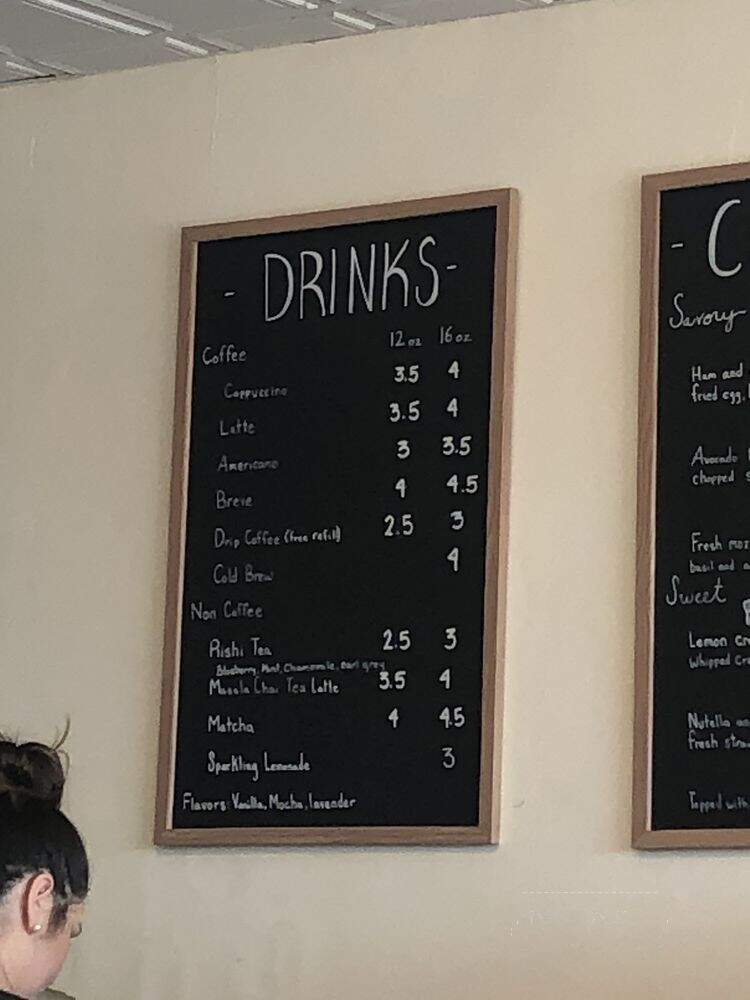 - DRINKS-
12 oz 16 oz
Coffee
Cappuccino 3.5 4
Latte 3.5 4
Americano 3 3.5
Breve 4 4.5
Drip Coffee (free refill) 2.5 3
Cold Brew 4
Non Coffee
Rishi Tea 2.5 3
Blueberry, Mint, Chamomile, earl grey
Masala Chai Tea Latte 3.5 4
Matcha 4 4.5
Sparkling Lemonade 3
Flavors: Vanilla, Mocha, lavender
- C
Savory
Ham and
fried egg,
Avocado
chopped
Fresh
basil and
Sweet
Lemon
Whipped
Nutella
fresh
Topped with